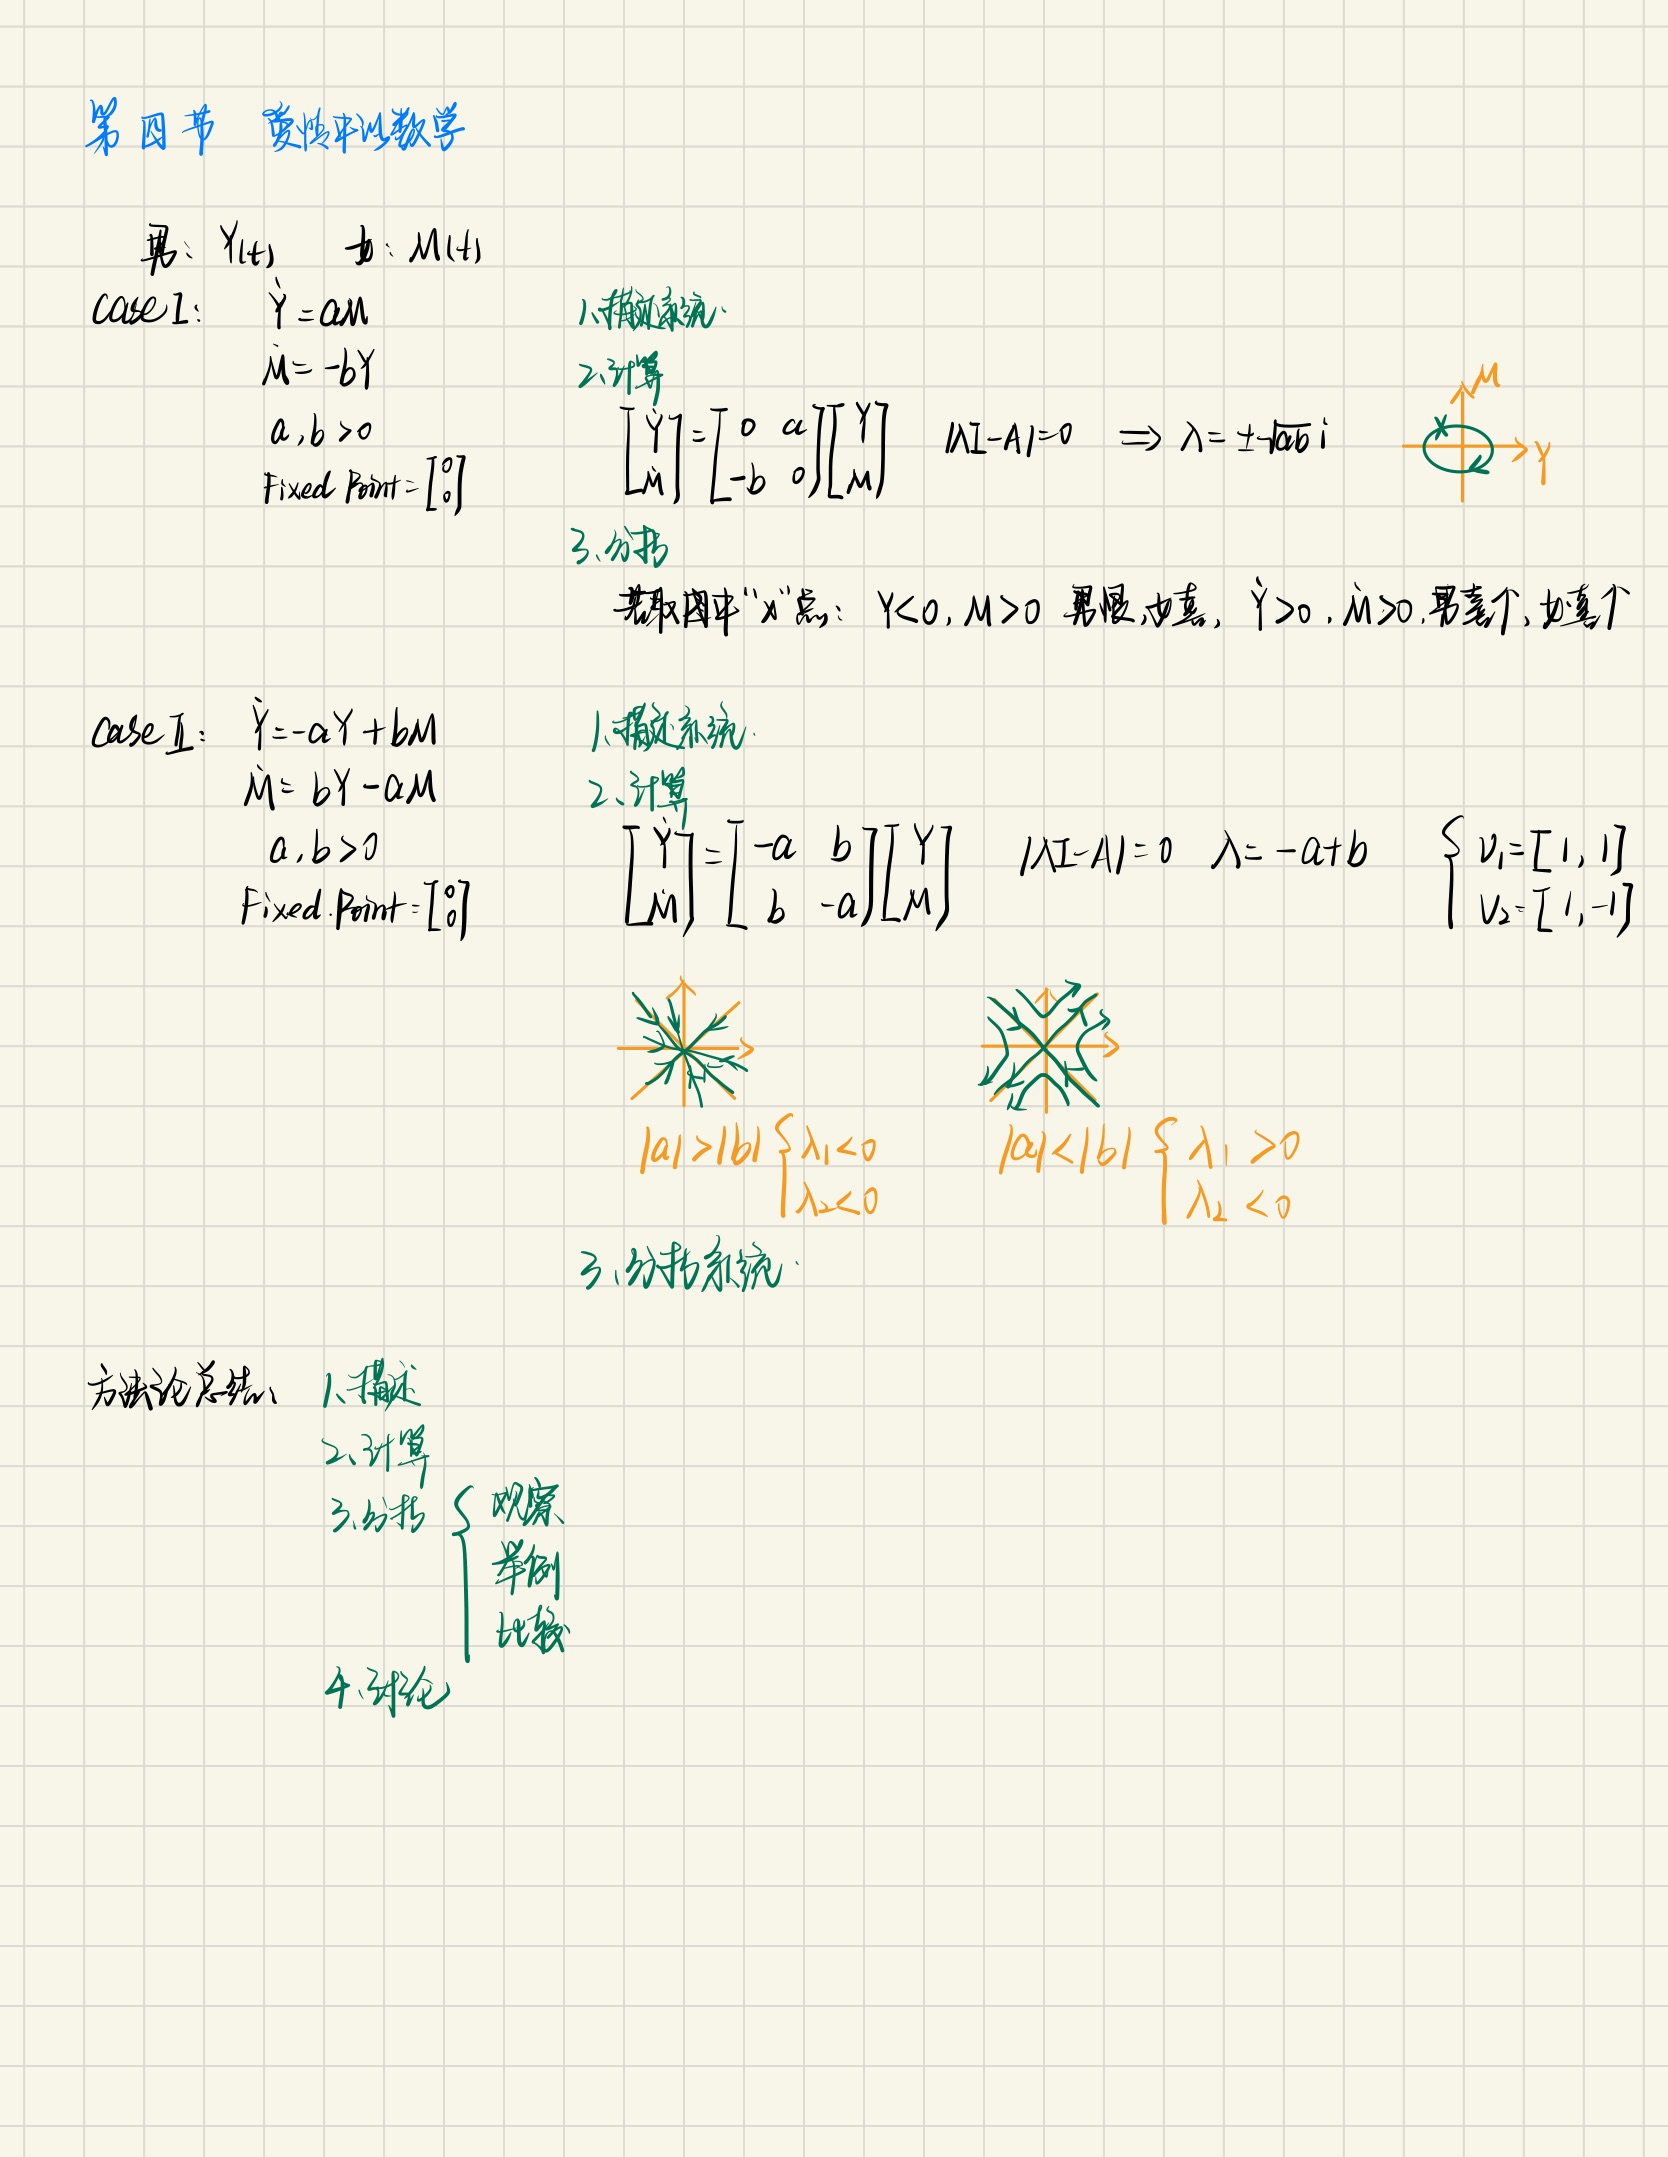 第四节 爱情中的数学
男: Y(t) 女: M(t)
case I: Ẏ = aM
Ṁ = -bY
a, b > 0
Fixed Point = [0 0]
1、描述系统.
2、计算
[Ẏ Ṁ] = [0 a -b 0] [Y M] |λI-A|=0 ⇒ λ = ±√ab i
M
Y
3、分析
若取图中“x”点: Y<0, M>0 男恨,女喜, Ẏ>0, Ṁ>0, 男喜↑, 女喜↑
case II: Ẏ = -aY + bM
Ṁ = bY - aM
a, b > 0
Fixed Point = [0 0]
1、描述系统.
2、计算
[Ẏ Ṁ] = [-a b b -a] [Y M] |λI-A| = 0 λ = -a+b { V₁ = [1, 1] V₂ = [1, -1]
|a| > |b| { λ₁<0 λ₂<0
|a| < |b| { λ₁ > 0 λ₂ < 0
3、分析系统.
方法论总结、
1、描述
2、计算
3、分析 { 观察、
举例
比较
4、讨论